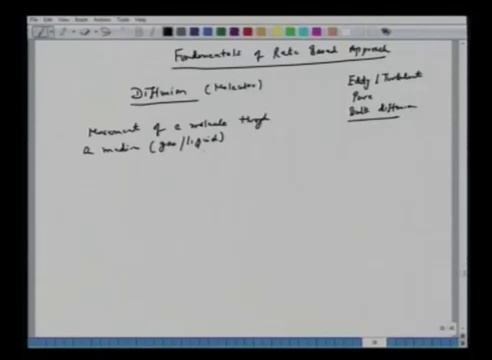 File Edit View Insert Actions Tools Help
Fundamentals of Rate Based Approach
Diffusion (Molecular)
Eddy / Turbulent
Pore
Bulk diffusion
Movement of a molecule through
a medium (gas/liquid)